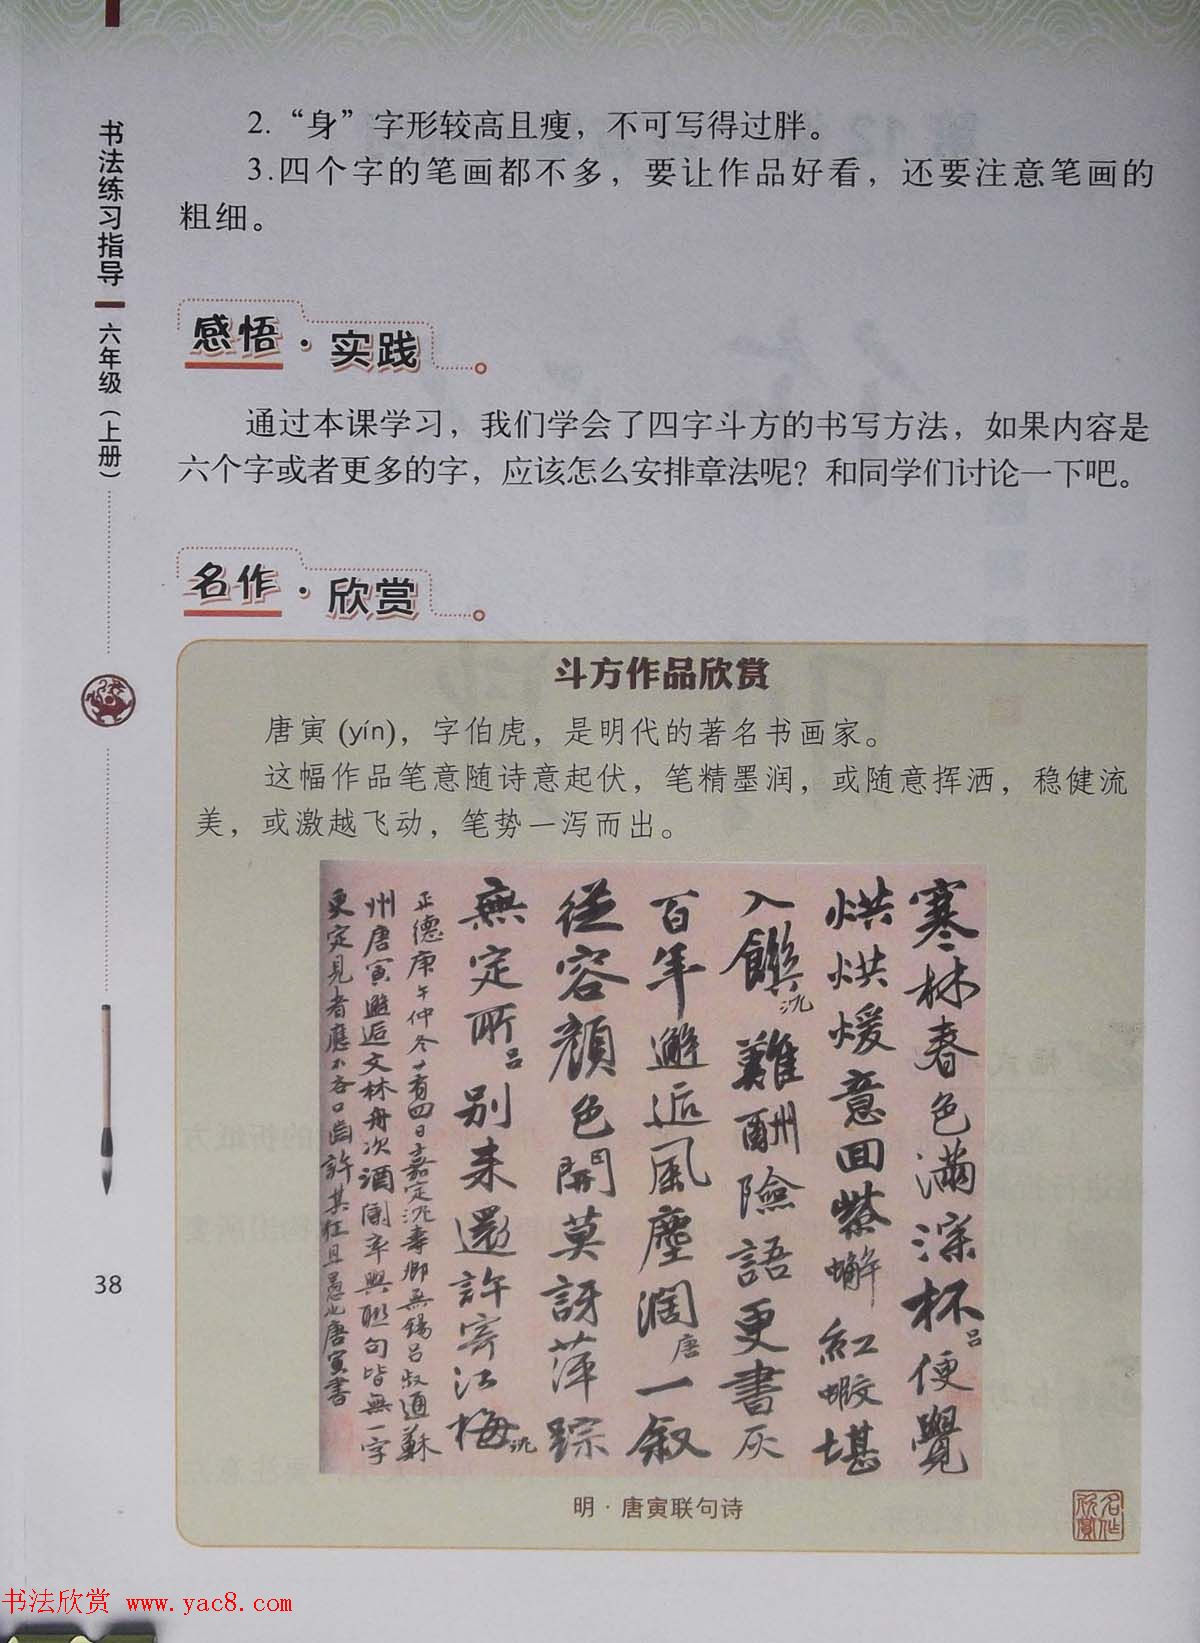 书法练习指导
六年级(上册)
2.“身”字形较高且瘦，不可写得过胖。
3.四个字的笔画都不多，要让作品好看，还要注意笔画的
粗细。
感悟·实践
通过本课学习，我们学会了四字斗方的书写方法，如果内容是
六个字或者更多的字，应该怎么安排章法呢？和同学们讨论一下吧。
名作·欣赏
斗方作品欣赏
唐寅(yín)，字伯虎，是明代的著名书画家。
这幅作品笔意随诗意起伏，笔精墨润，或随意挥洒，稳健流
美，或激越飞动，笔势一泻而出。
寒林春色满深杯吕便覺
烘烘煖意回紫蠏紅蝦堪
入饌沈難酬險語更書灰
百年邂逅風塵濶唐一叙
從容顔色開莫訝萍踪
無定所吕别来還許寄江梅沈
正德庚午仲冬十有四日嘉定沈壽卿無錫吕叔通蘇
州唐寅邂逅文林舟次酒闌率興聯句皆無一字
更定見者應不吝口齒許其狂且愚也唐寅書
明·唐寅联句诗
名作欣賞
38
书法欣赏 www.yac8.com